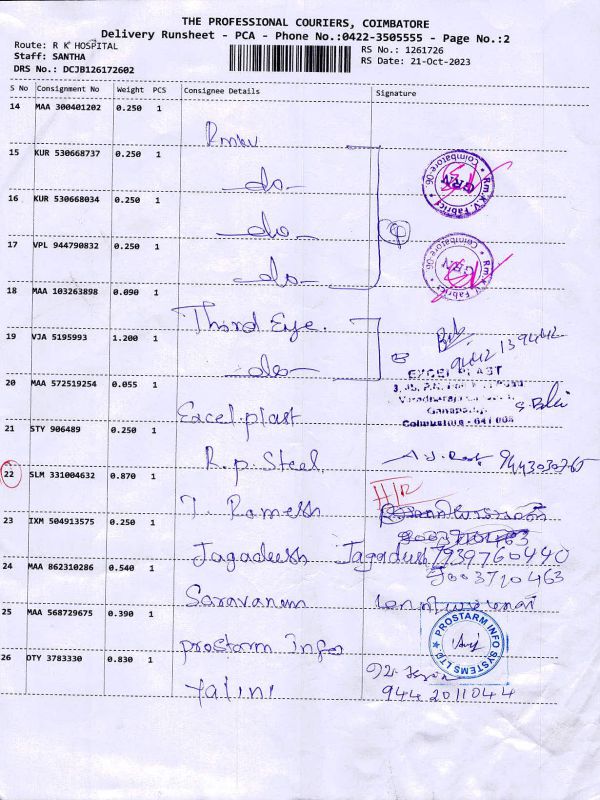 THE PROFESSIONAL COURIERS, COIMBATORE
Delivery Runsheet - PCA - Phone No.:0422-3505555 - Page No.:2
Route: R K HOSPITAL
Staff: SANTHA
DRS No.: DCJB126172602
RS No.: 1261726
RS Date: 21-Oct-2023
S No Consignment No Weight PCS Consignee Details Signature
14 MAA 300401202 0.250 1
15 KUR 530668737 0.250 1 do
16 KUR 530668034 0.250 1 do
17 VPL 944790832 0.250 1 do
Coimbatore-06 GRN Fabrics
Coimbatore-06 GRN Fabrics
18 MAA 103263898 0.090 1 Third Eye.
19 VJA 5195993 1.200 1 do
9442139442
20 MAA 572519254 0.055 1 Excel plast
EXCEL PLAST
Ganapathy,
Coimbatore - 641 006
21 STY 906489 0.250 1 R.p. Steel
9443030765
22 SLM 331004632 0.870 1 T. Ramesh
23 IXM 504913575 0.250 1 Jagadeesh Jagadeesh 7939760440
24 MAA 862310286 0.540 1 Saravanan
9003720463
25 MAA 568729675 0.390 1 prostarm Info
PROSTARM INFO SYSTEMS LTD
26 OTY 3783330 0.830 1 Yalini
9442011044